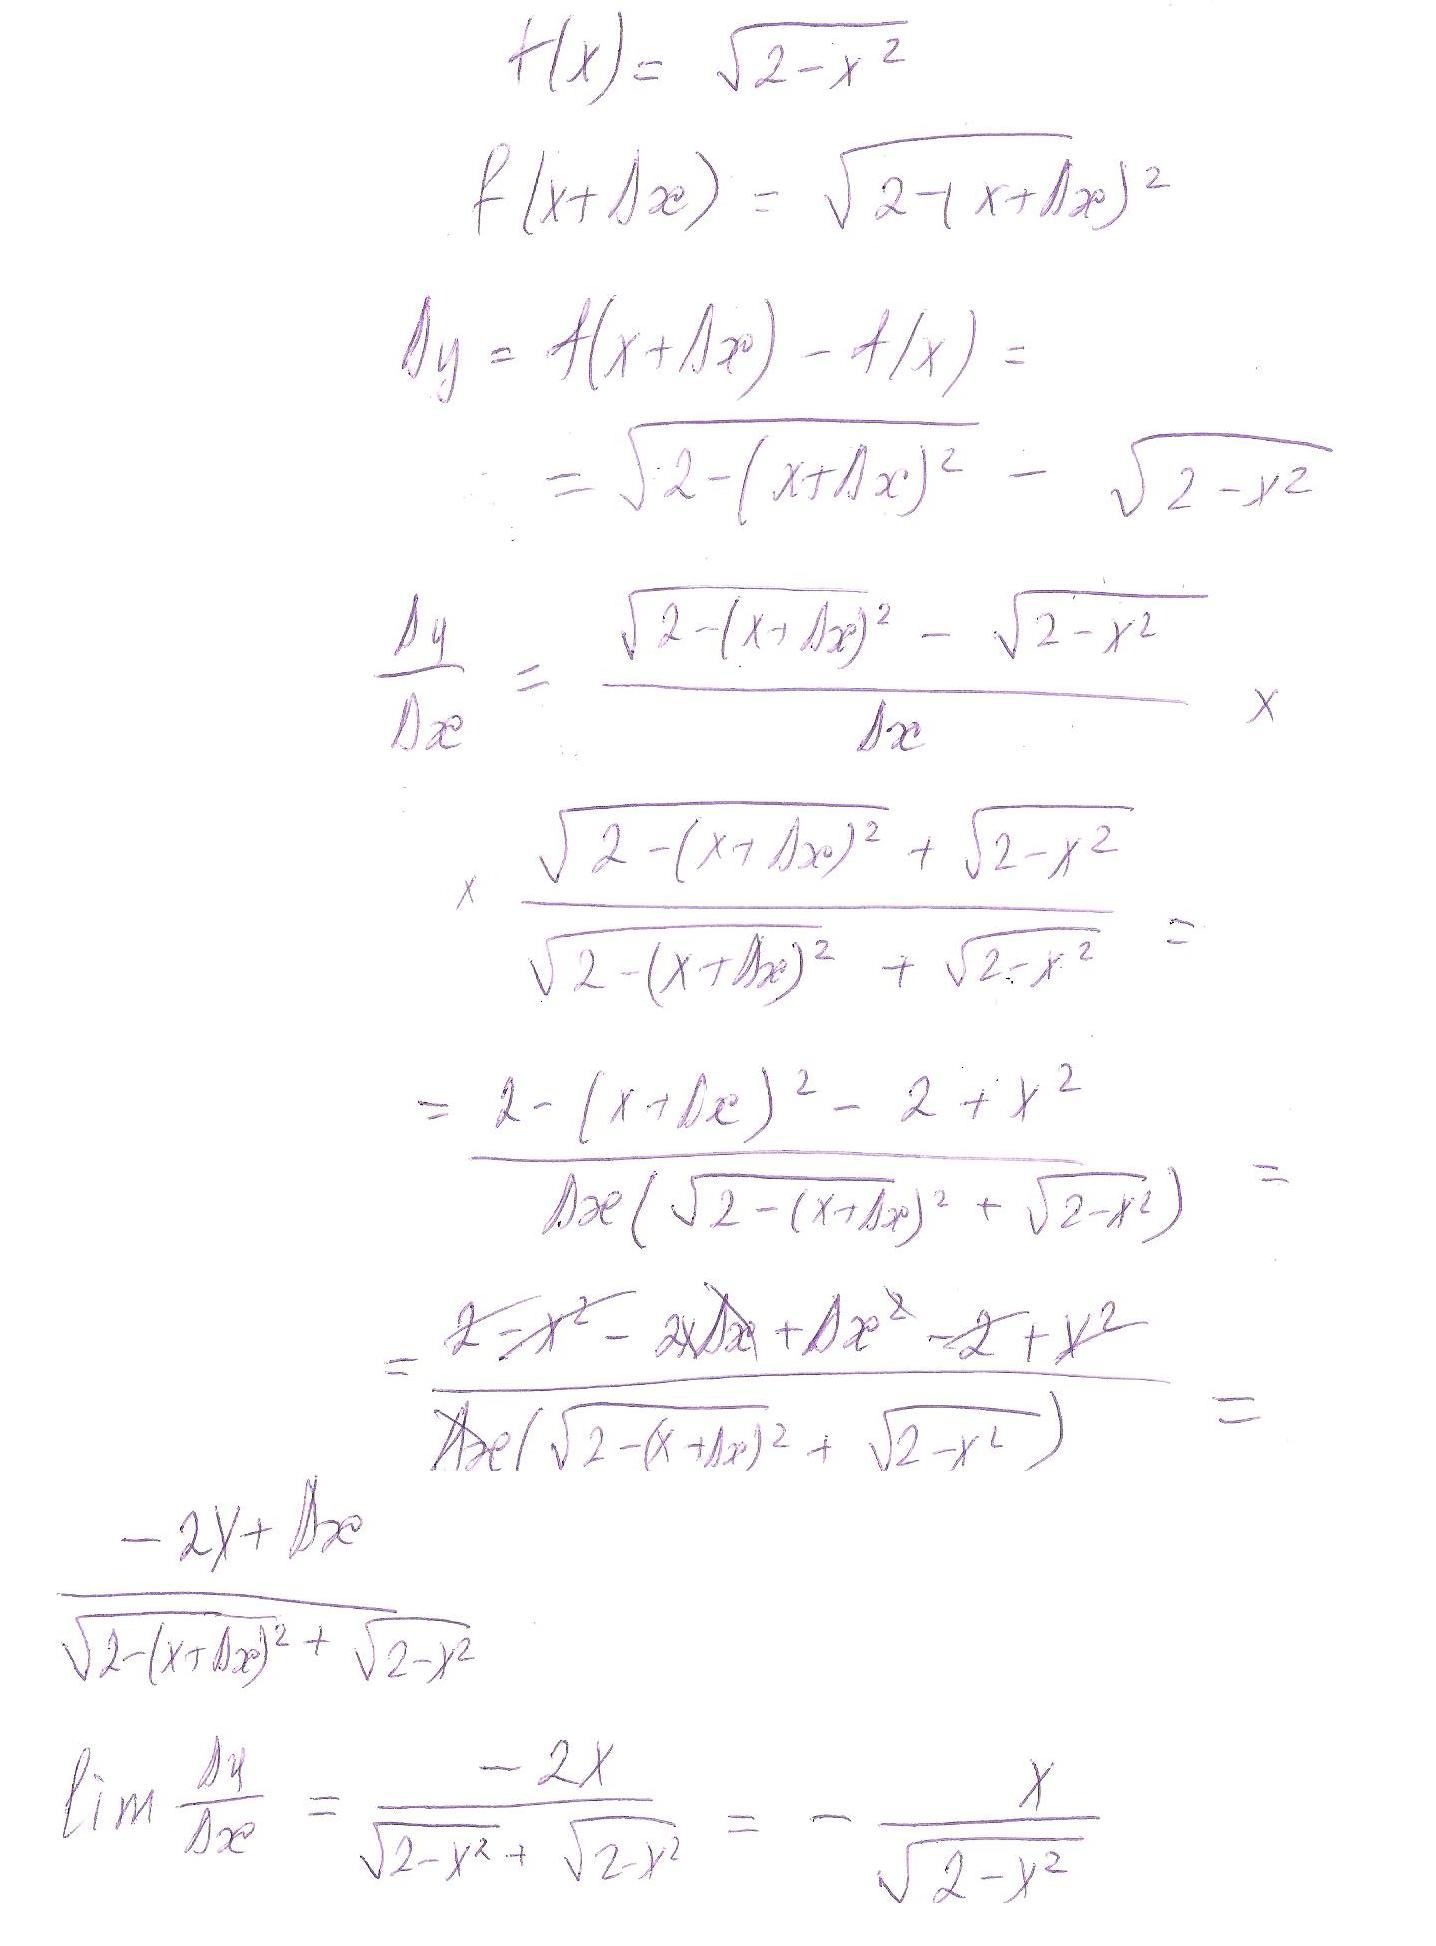 f(x) = √(2-x²)
f(x+Δx) = √(2-(x+Δx)²)
Δy = f(x+Δx) - f(x) =
= √(2-(x+Δx)²) - √(2-x²)
Δy/Δx = (√(2-(x+Δx)²) - √(2-x²))/Δx ×
× (√(2-(x+Δx)²) + √(2-x²))/(√(2-(x+Δx)²) + √(2-x²)) =
= (2-(x+Δx)² - 2 + x²)/(Δx(√(2-(x+Δx)²) + √(2-x²))) =
= (2-x² - 2xΔx + Δx² - 2 + x²)/(Δx(√(2-(x+Δx)²) + √(2-x²))) =
(-2x + Δx)/(√(2-(x+Δx)²) + √(2-x²))
lim Δy/Δx = (-2x)/(√(2-x²) + √(2-x²)) = - x/√(2-x²)